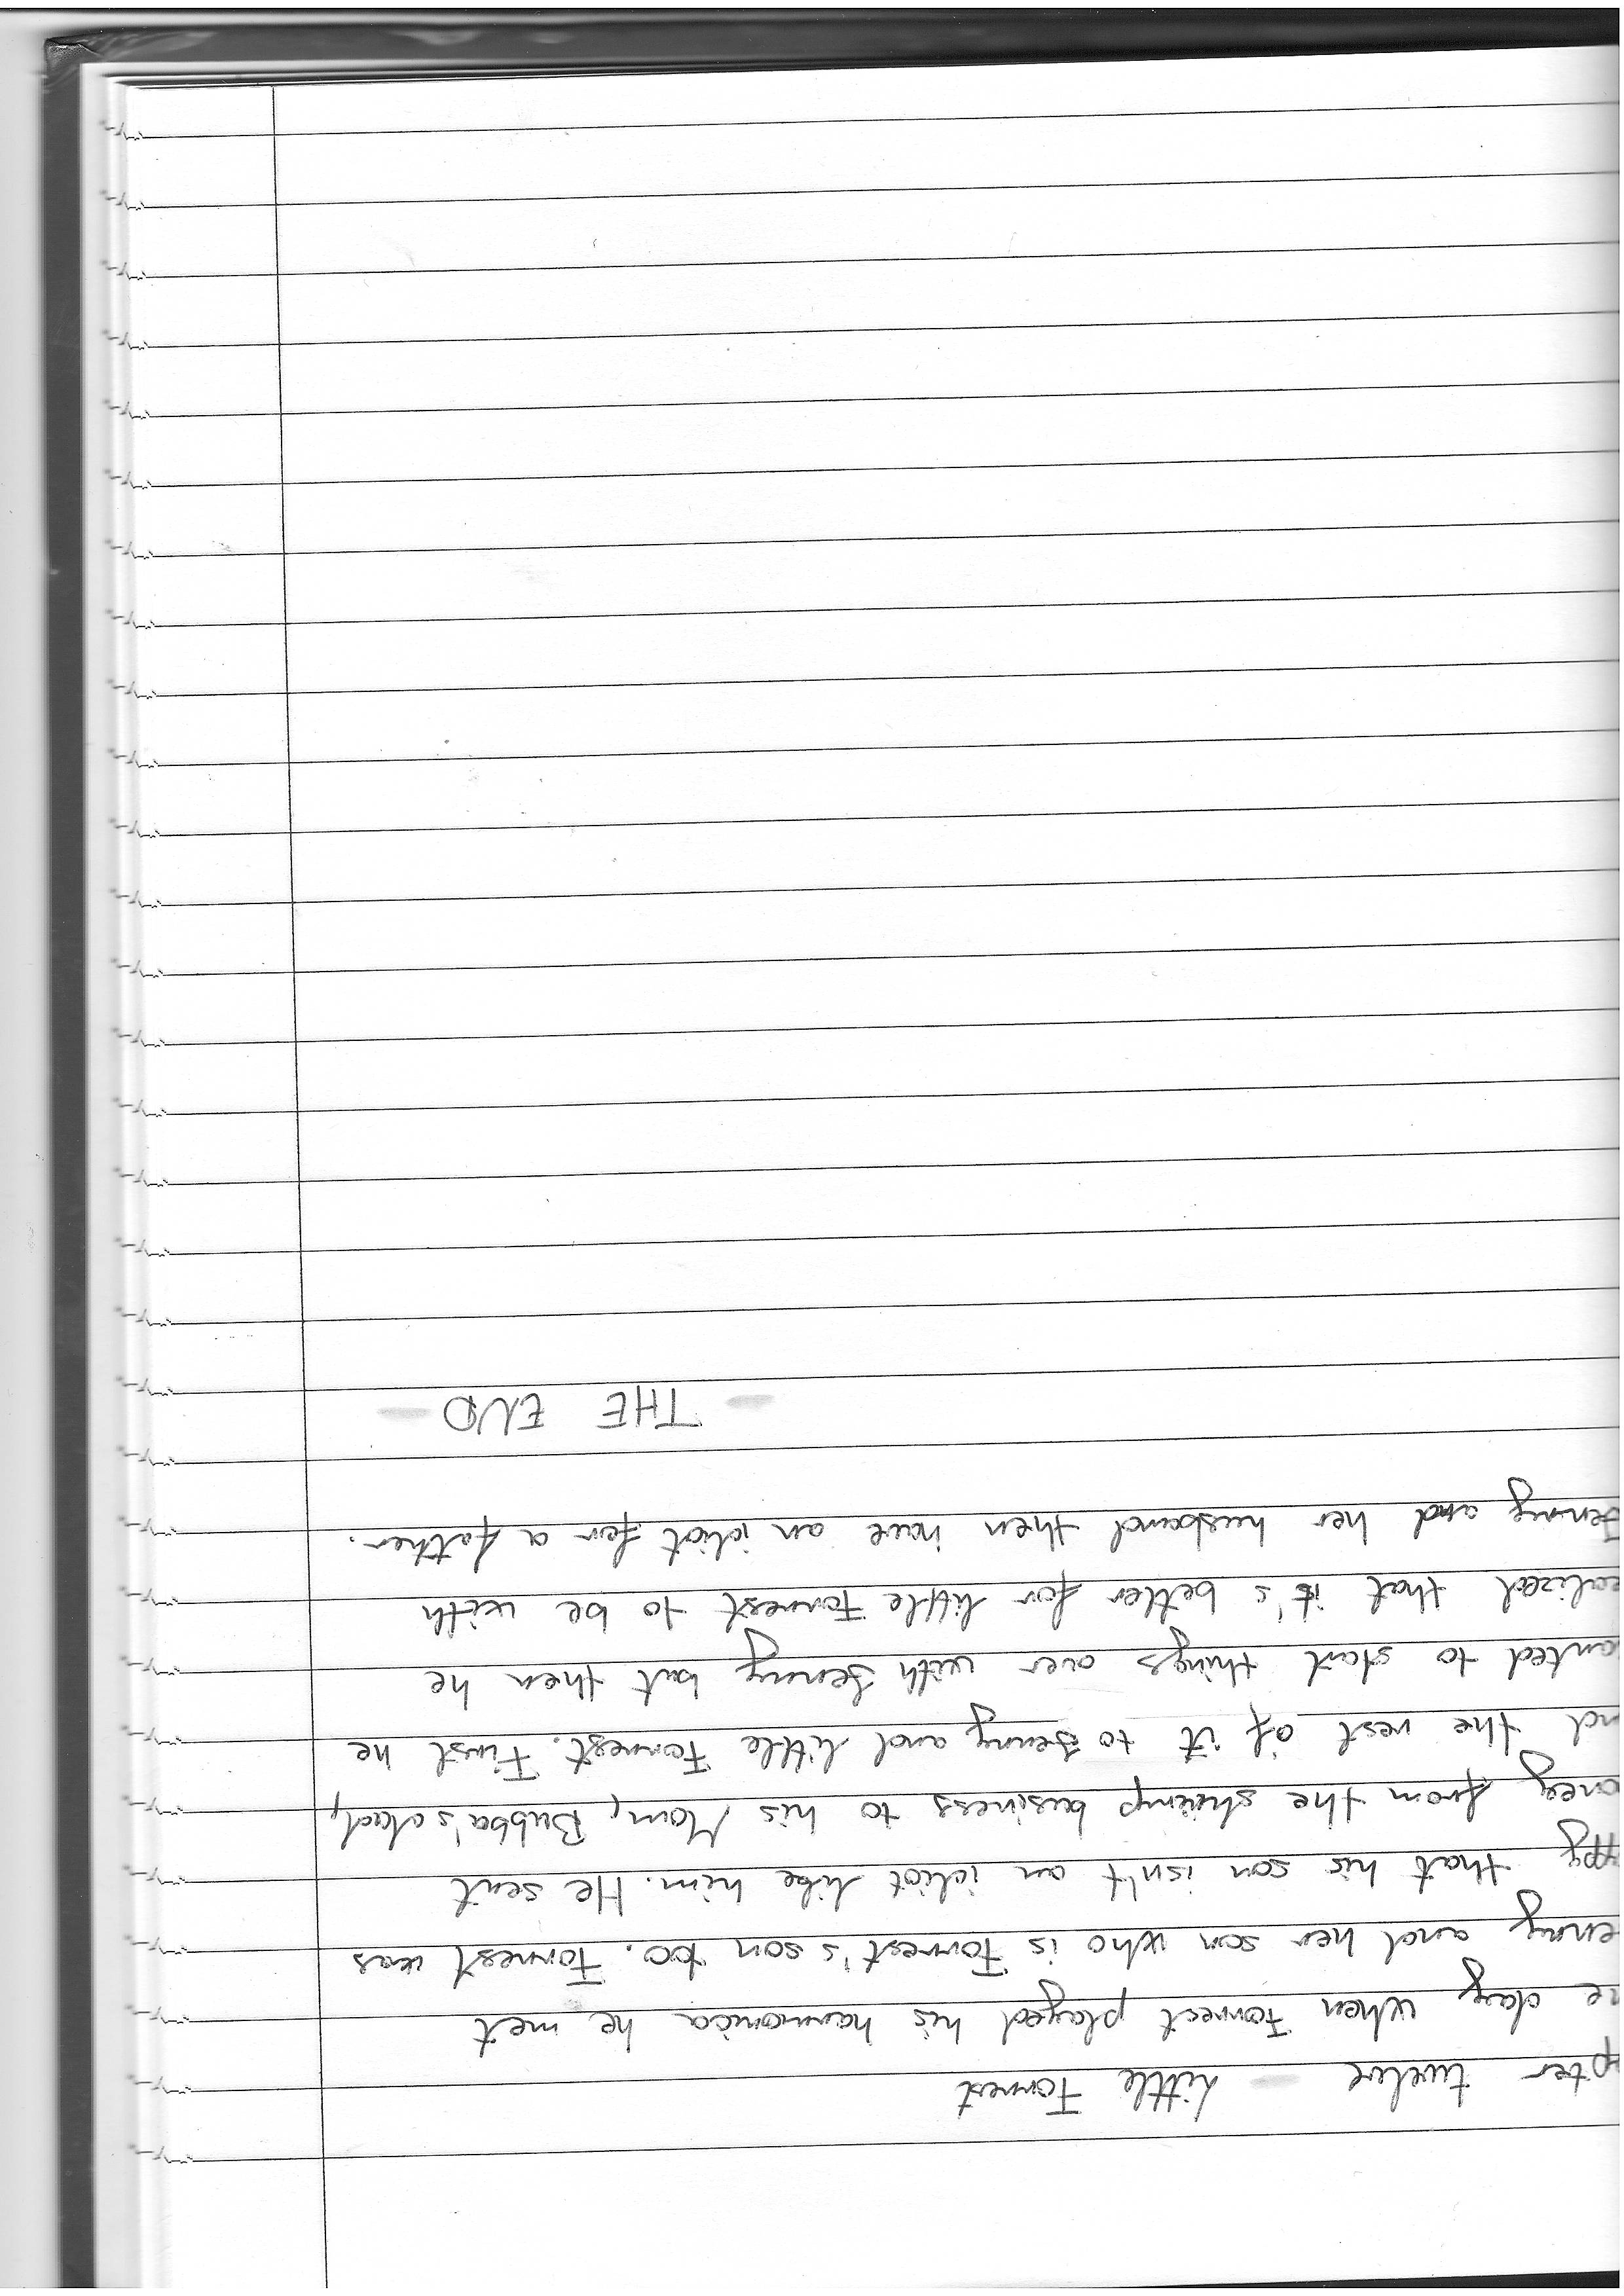 pter twelve - Little Forrest
ne day when Forrest played his harmonica he met
enny and her son who is Forrest's son too. Forrest was
ppy that his son isn't an idiot like him. He sent
oney from the shrimp business to his Mom, Bubba's dad,
nd the rest of it to Jenny and little Forrest. First he
anted to start things over with Jenny but then he
ealized that it's better for little Forrest to be with
Jenny and her husband then have an idiot for a father.
- THE END -